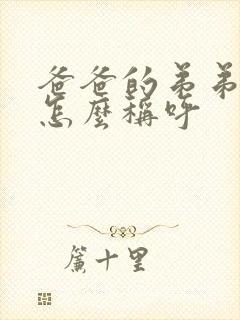 爸爸的弟弟
怎麼稱呼
簾十里